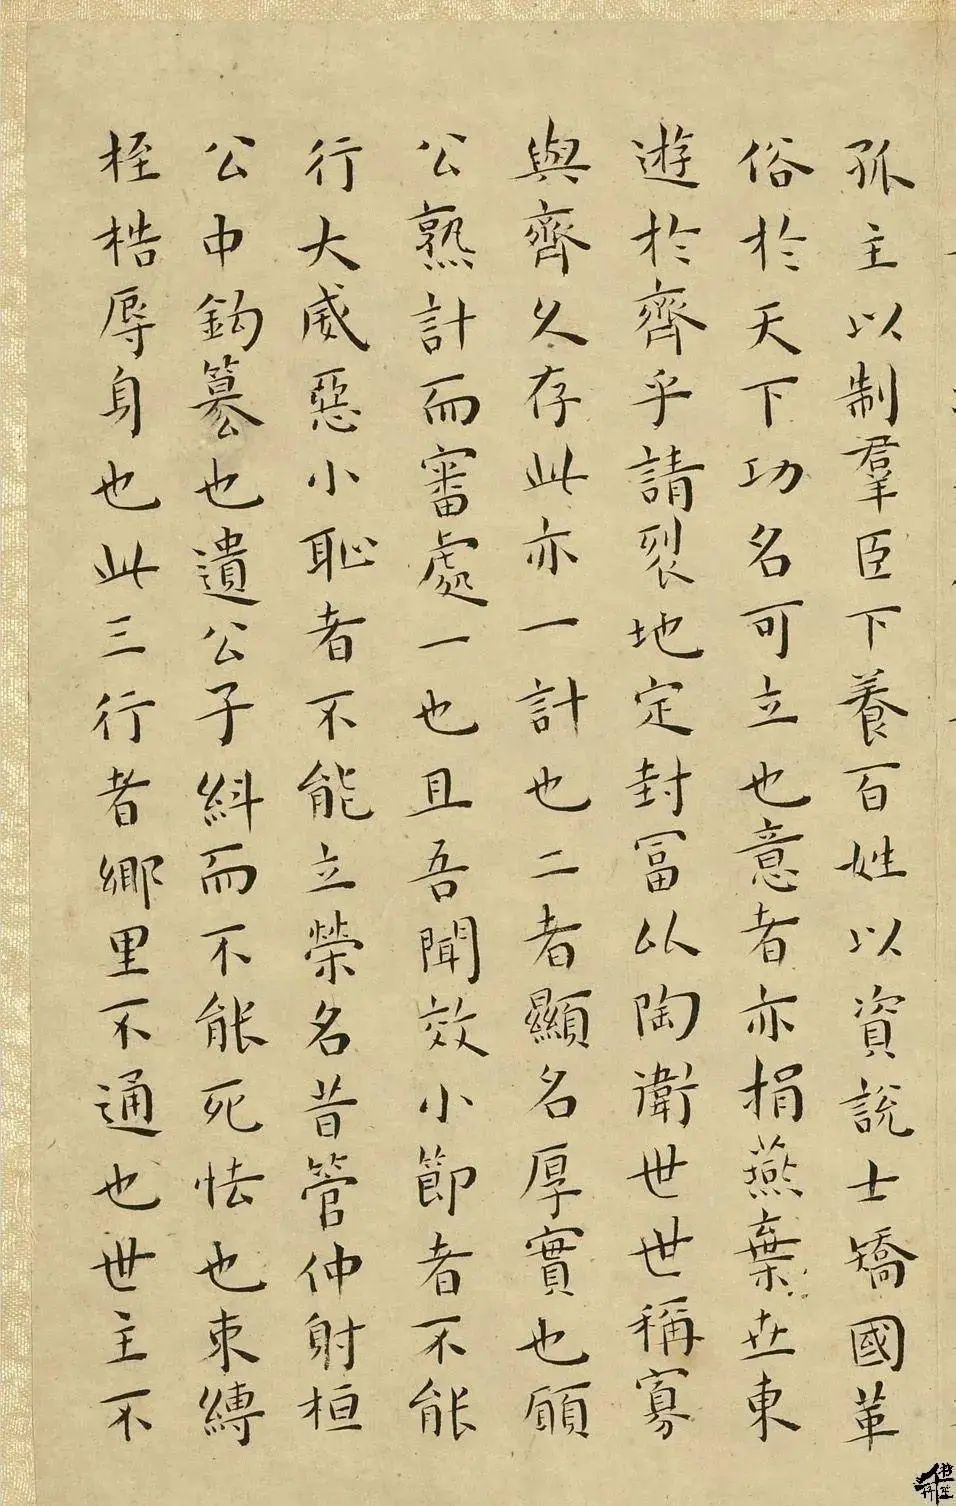 孤主以制羣臣下養百姓以資説士矯國革
俗於天下功名可立也意者亦捐燕棄世東
遊於齊乎請裂地定封冨以陶衛世世稱寡
與齊久存此亦一計也二者顯名厚實也願
公熟計而審處一也且吾聞效小節者不能
行大威惡小恥者不能立榮名昔管仲射桓
公中鈎篡也遺公子糾而不能死怯也束縛
桎梏辱身也此三行者鄉里不通也世主不